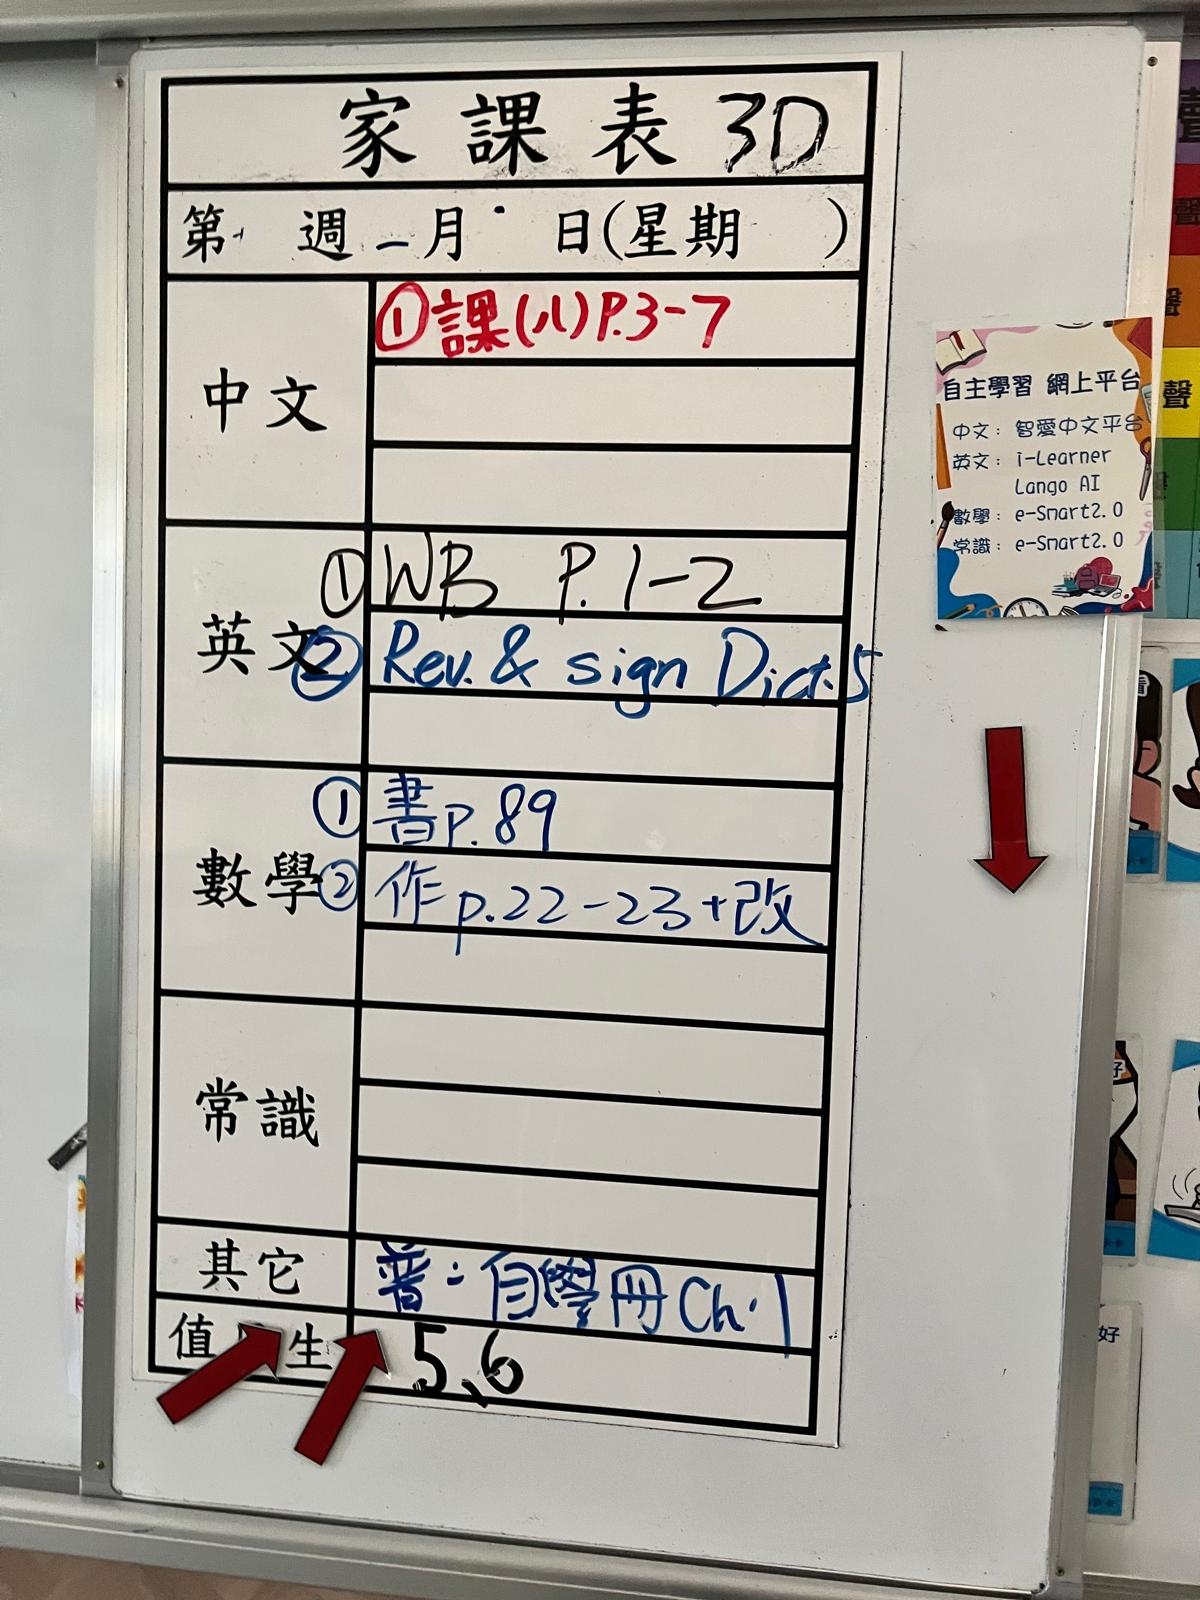 家課表 3D
第 週 月 日(星期 )
中文
①課(八)P.3-7
英文
① WB P.1-2
② Rev. & sign Dict.5
數學
① 書p.89
② 作p.22-23+改
常識
其它
普：自學冊Ch.1
值 生
5、6
自主學習 網上平台
中文：智愛中文平台
英文：i-Learner
Lango AI
數學：e-Smart2.0
常識：e-Smart2.0
聲
聲
聲
聲
看
好
好
示卡